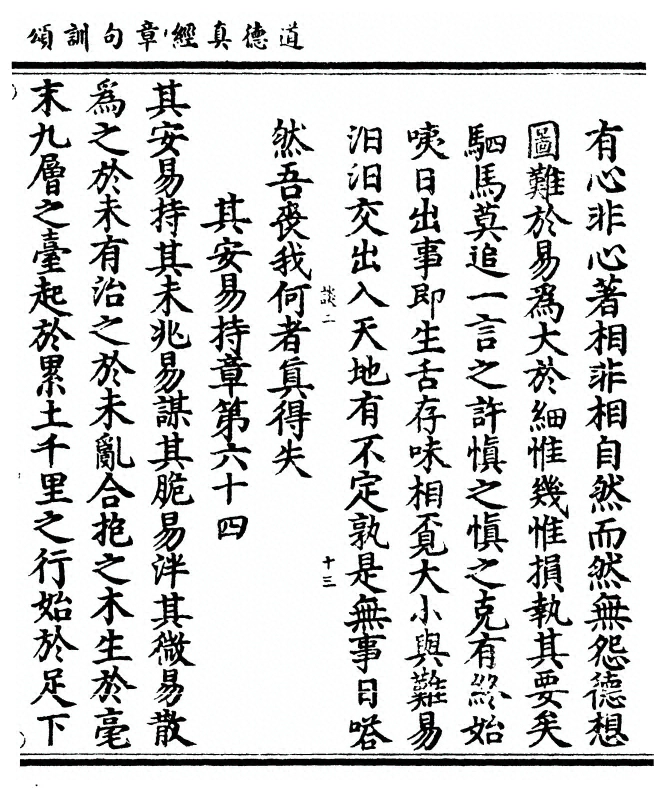 道德真經章句訓頌
有心非心著相非相自然而然無怨德想
圖難於易爲大於細惟幾惟損執其要矣
駟馬莫追一言之許愼之愼之克有終始
咦日出事即生舌存味相覓大小與難易
汨汨交出入天地有不定孰是無事日嗒
談二
十三
然吾喪我何者眞得失
其安易持章第六十四
其安易持其未兆易謀其脆易泮其微易散
爲之於未有治之於未亂合抱之木生於毫
末九層之臺起於累土千里之行始於足下